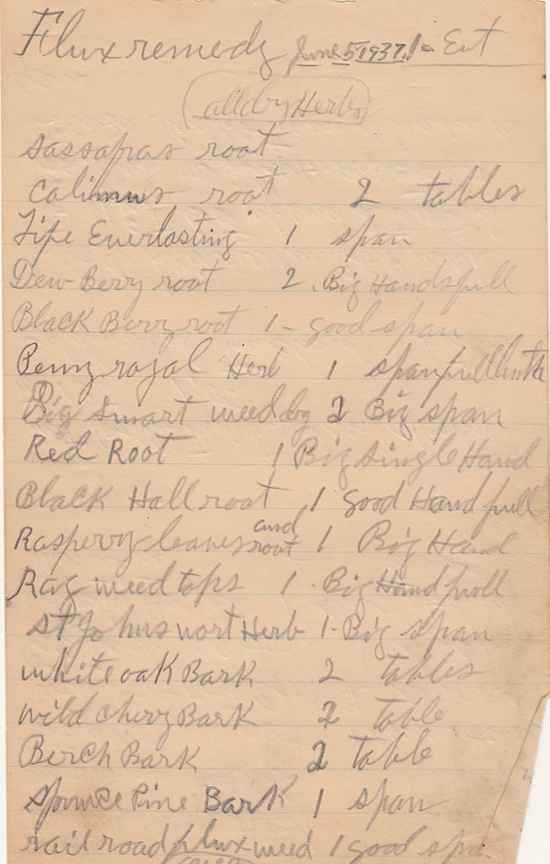 Flux remedy June 5 1937, Ext
all dry Herbs
sassafras root
calimus root 2 tables
Life Everlasting 1 span
Dew Berry root 2 Big Handsfull
Black Berry root 1 - good span
Penny royal Herb 1 spanfull
Big Smart weed 2 Big span
Red Root 1 Big single Hand
Black Hall root 1 good Hand full
and
Raspery leaves root 1 Big Hand
Rag weed tops 1 Big Hand full
st Johns wort Herb 1 - Big span
white oak Bark 2 tables
wild chery Bark 2 table
Berch Bark 2 table
spruce Pine Bark 1 span
rail road flux weed 1 good